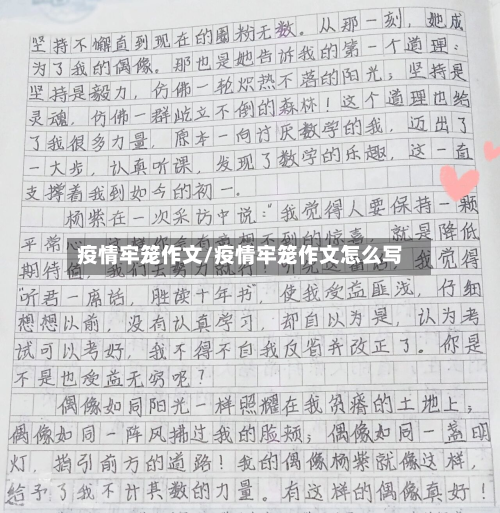 坚持不懈直到现在的圈粉无数。从那一刻，她成
为了我的偶像。那也是她告诉我的第一个道理：
坚持是毅力，仿佛一轮炽热不落的阳光；坚持是
灵魂，仿佛一群屹立不倒的森林！这个道理也给
了我很多力量，原本一向讨厌数学的我，迈出了
一大步，认真听课，发现了数学的乐趣，这一直
支撑着我到如今的初一。
杨紫在一次采访中说："我觉得人要保持一颗
平常心
不到的惊喜，就是降低
疫情牢笼作文/疫情牢笼作文怎么写
期待值，我们去努力就行"听完这
我觉得
"听君一席话，胜读十年书"，使我受益匪浅，仔细
想想以前，没有认真学习，却自以为是，认为考
试可以考好，我不得不自我反省并改正了。你是
不是也受益无穷呢？
偶像如同阳光一样照耀在我贫瘠的土地上；
偶像如同一阵风拂过我的脸颊；偶像如同一盏明
灯，指引前方的道路！我的偶像杨紫就像这样，
给予了我不计其数的力量。有这样的偶像真好！